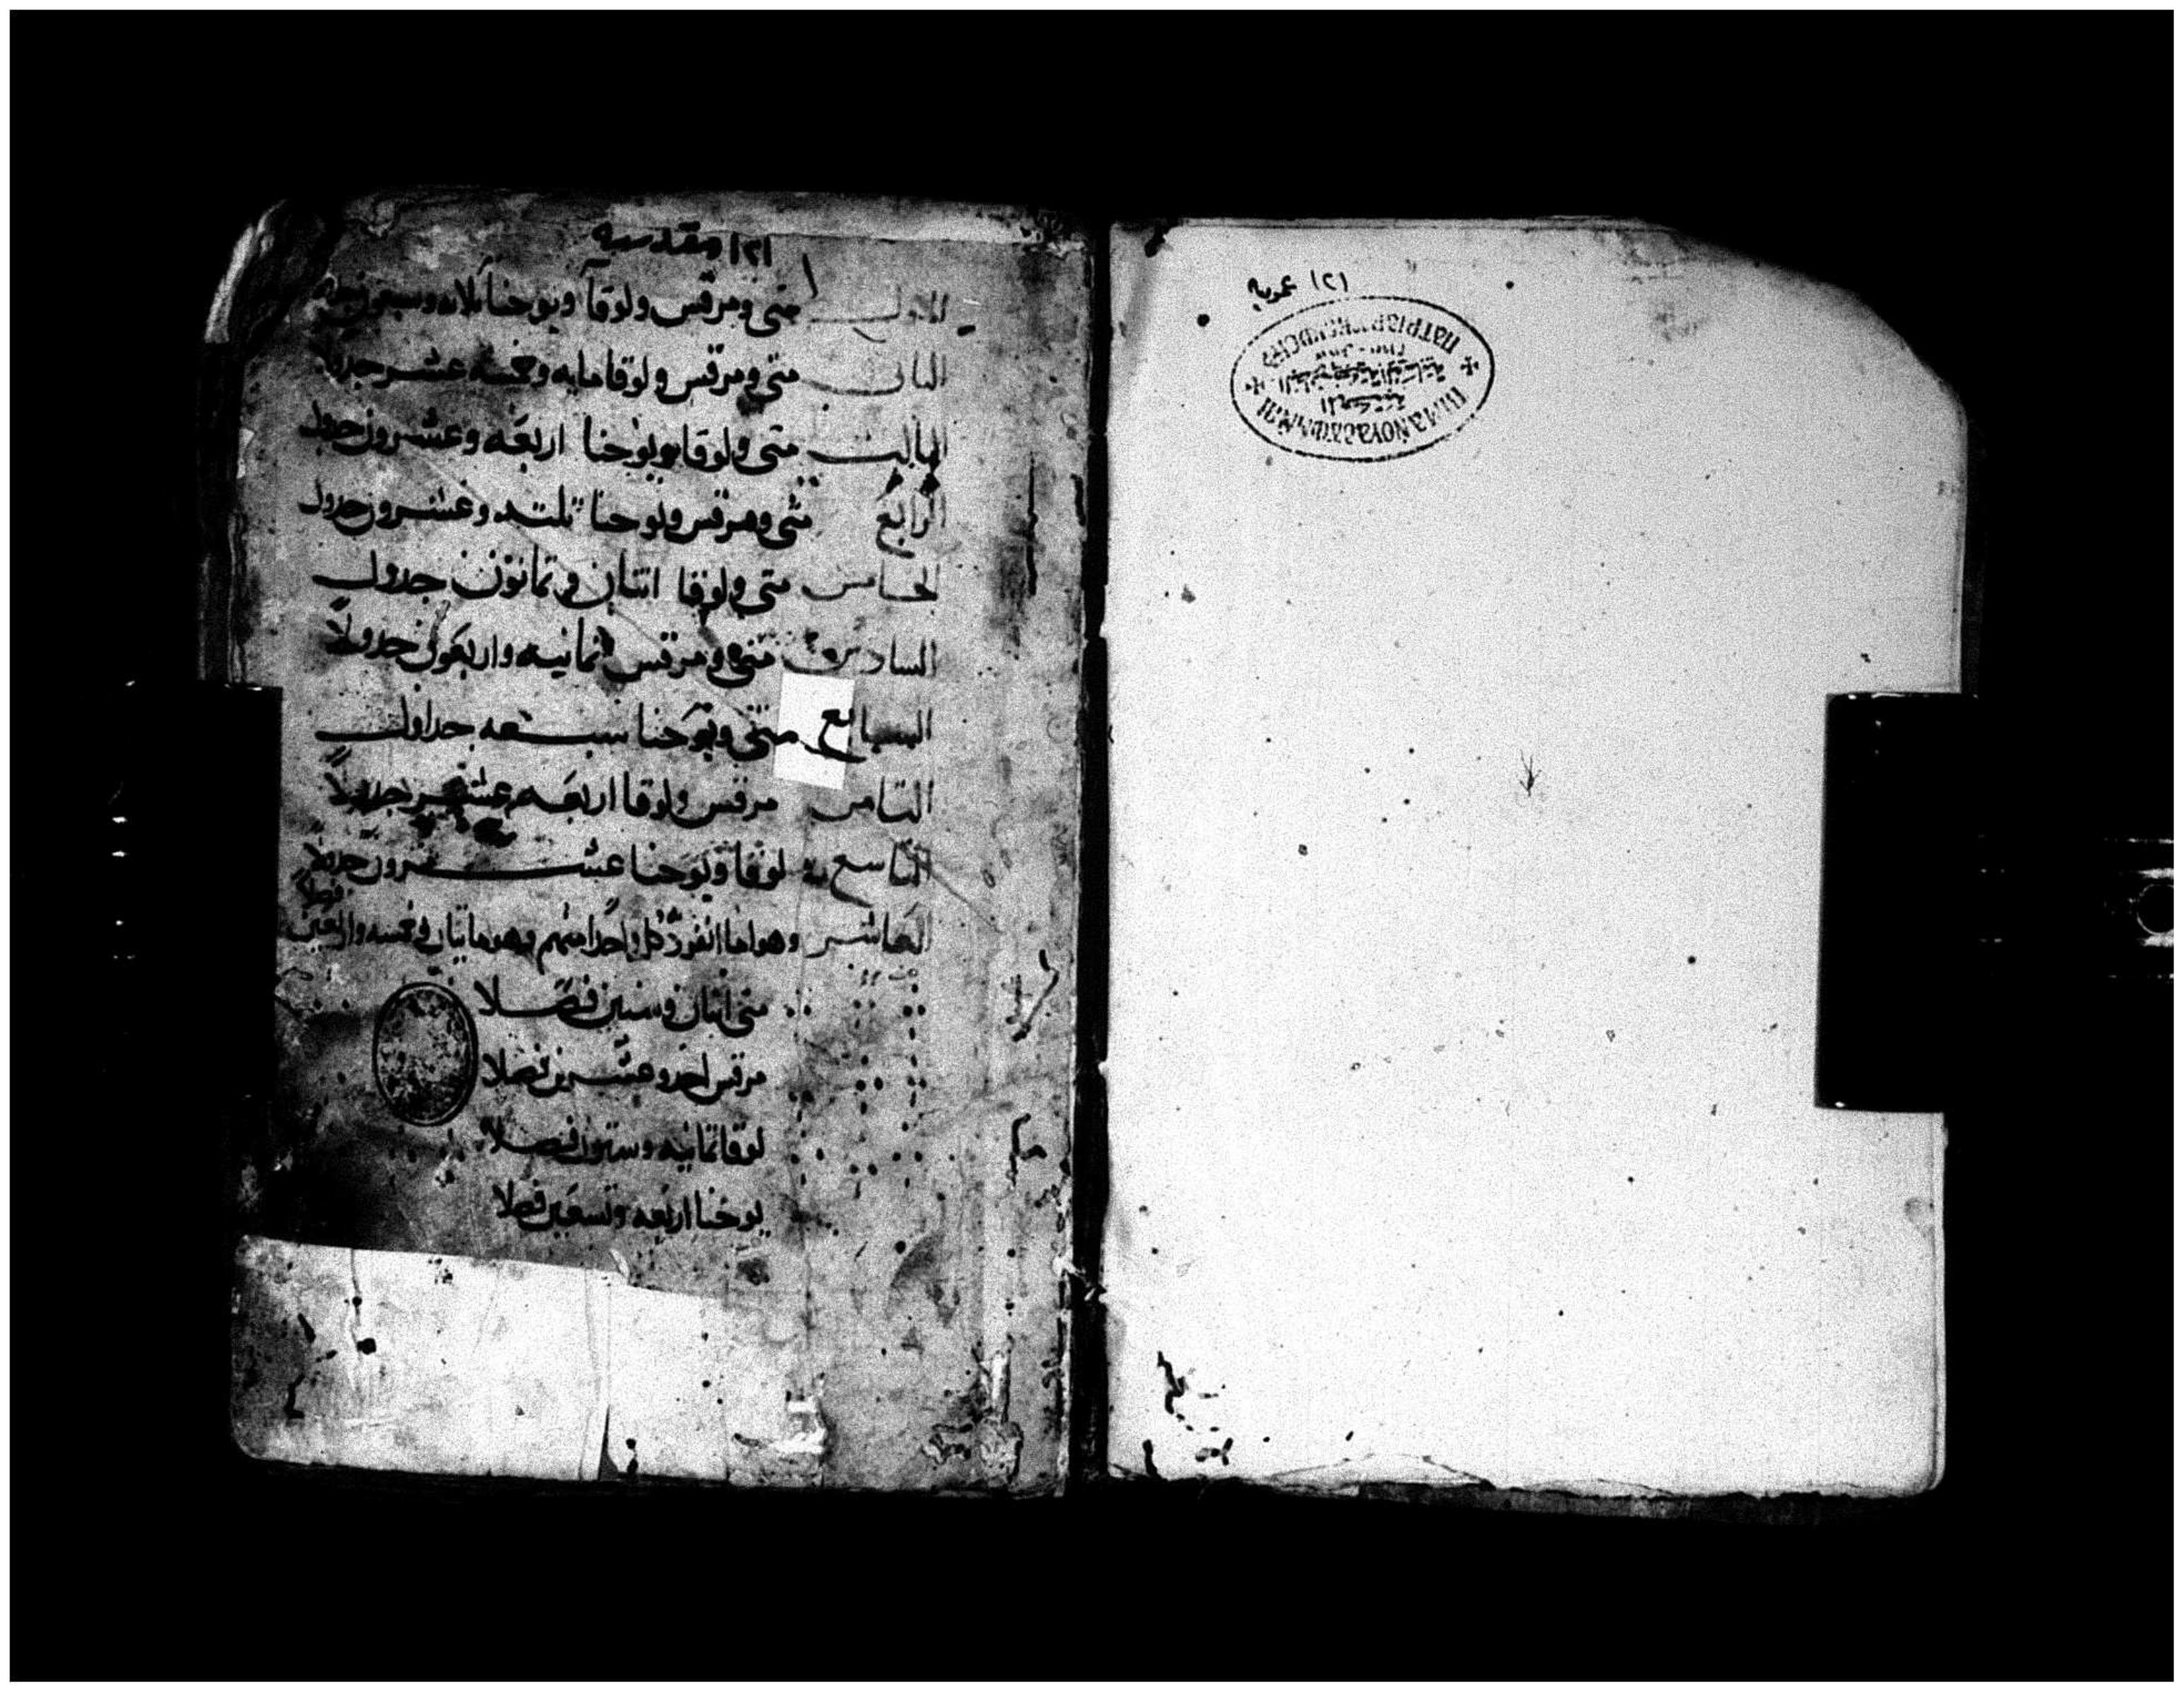 ١٢١ عمومية
١٢١ مقدسه
الاول متى ومرقس ولوقا ويوحنا
الثانى متى ومرقس ولوقا مايه وخمسه عشر جدولا
الثالث متى ولوقا ويوحنا اربعه وعشرون جدول
الرابع متى ومرقس ويوحنا وعشرون جدول
الخامس متى ولوقا اتنان وتمانون جدول
السادس متى ومرقس ثمانيه واربعون جدولاً
السابع متى ويوحنا سبعه جداول
التامن مرقس ولوقا اربعه عشر جدولاً
التاسع لوقا ويوحنا عشرون جدولاً
العاشر وهو ما انفرد كل واحدا منهم وهو مايتان وخمسه واربعين فصلا
متى اتنان وستين فصلا
مرقس احد وعشرين فصلا
لوقا تمانيه وستون فصلا
يوحنا اربعه وتسعين فصلا